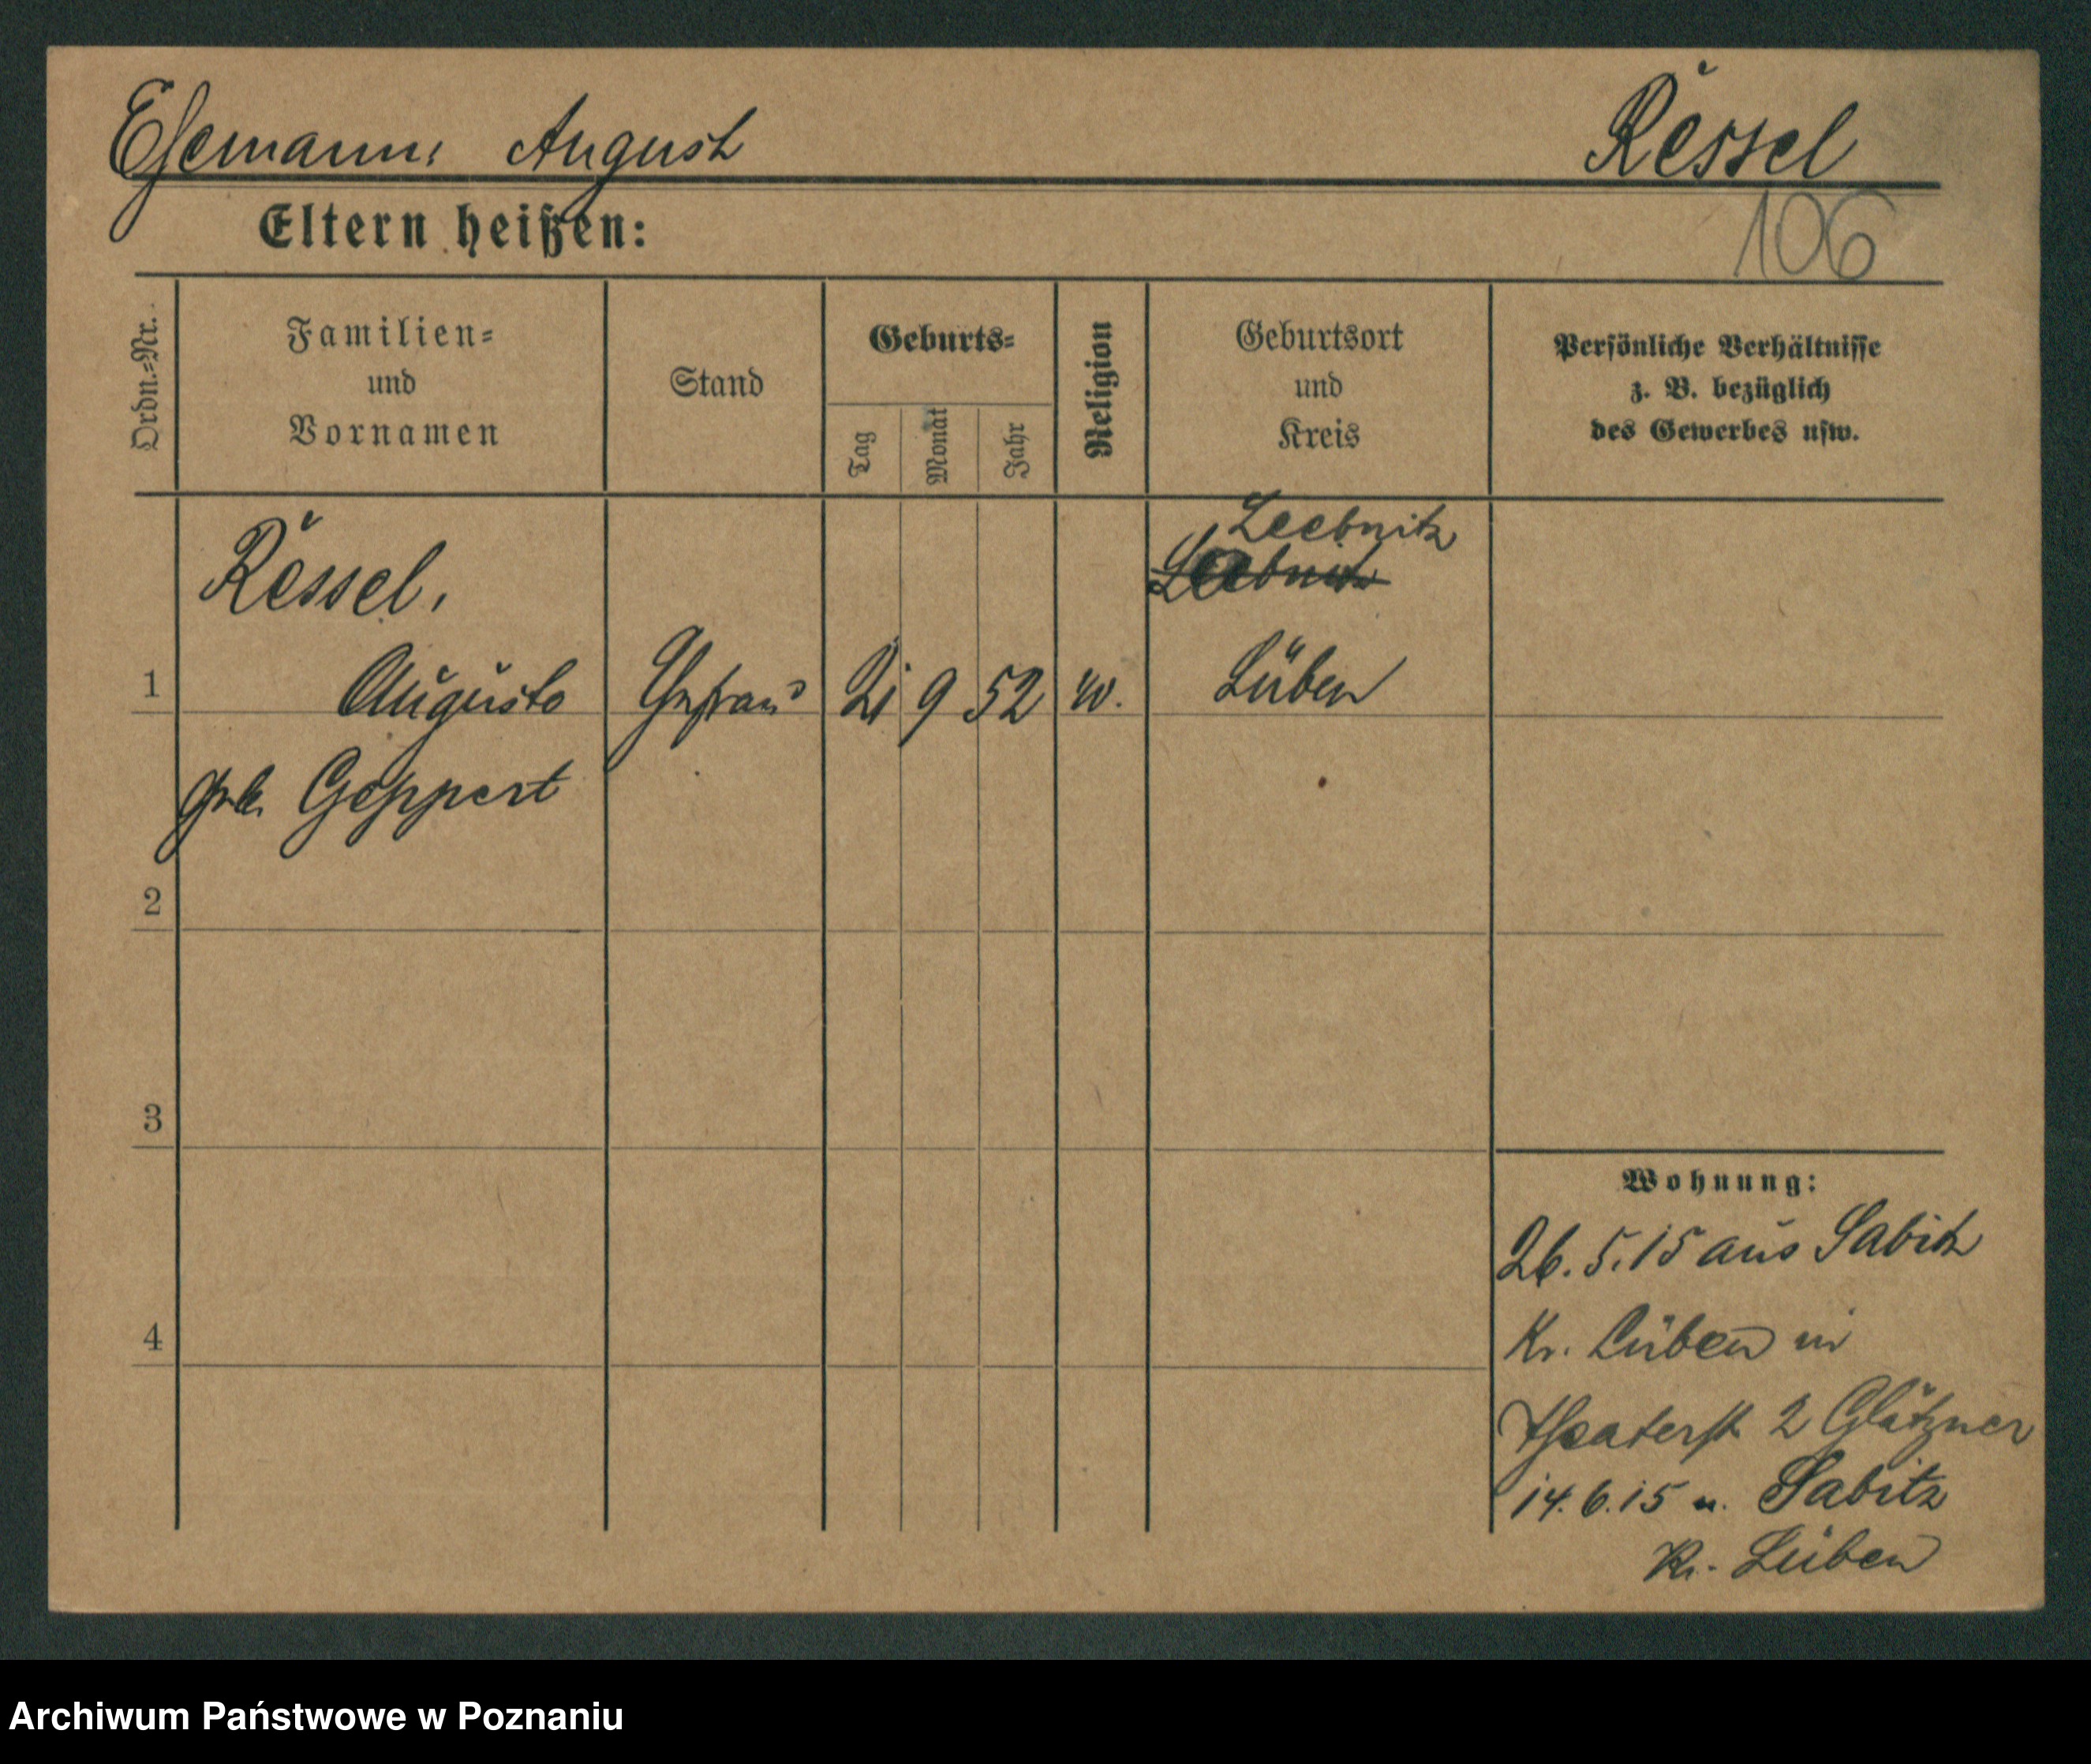 Ehemann: August Ressel
106
Eltern heißen:
Ordn.=Nr.
Familien=
und
Vornamen
Stand
Geburts=
Tag
Monat
Jahr
Religion
Geburtsort
und
Kreis
Persönliche Verhältnisse
z. B. bezüglich
des Gewerbes usw.
Leebnitz
Ressel,
1 Auguste Ehefrau 21 9 52 ev. Lüben
geb. Geppert
2
3
4
Wohnung:
26. 5. 15 aus Sabitz
Kr. Lüben in
Theaterst 2 Glätzner
14. 6. 15 n. Sabitz
Kr. Lüben
Archiwum Państwowe w Poznaniu